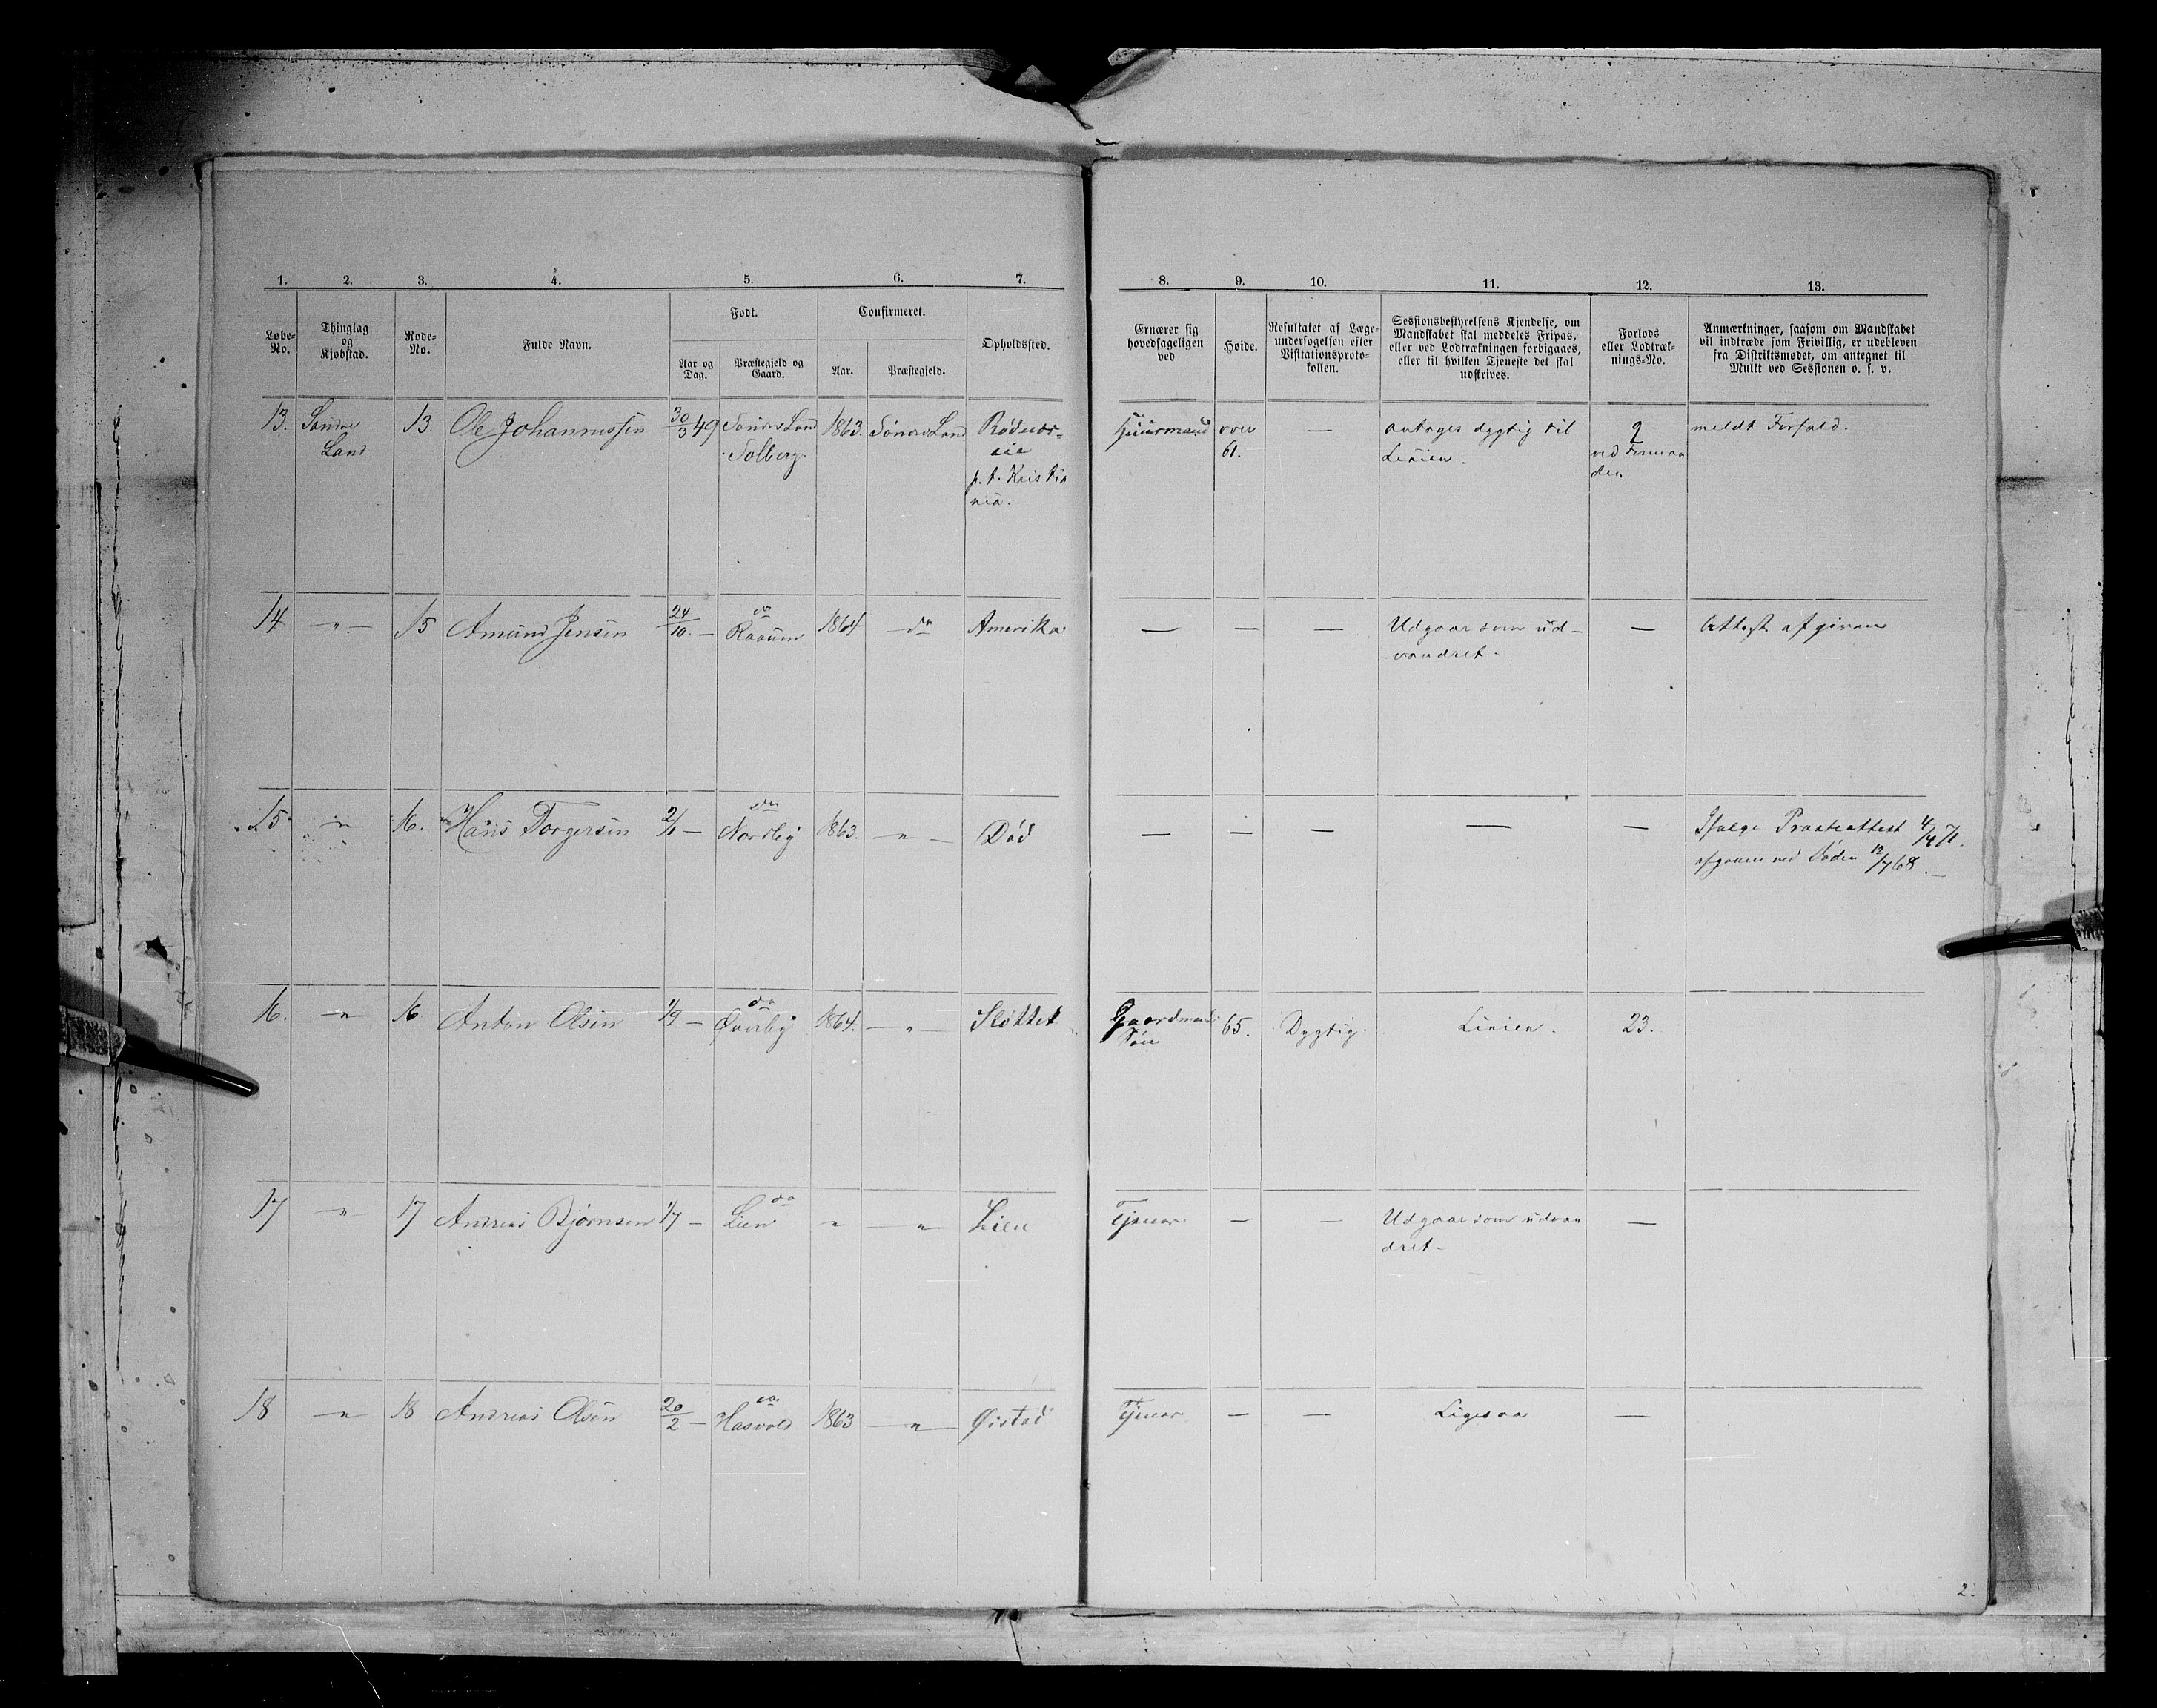 1. 2. 3. 4. 5. 6. 7. 8. 9. 10. 11. 12. 13.
Løbe-No.
Thinglag og Kjøbstad.
Rode-No.
Fulde Navn.
Født.
Aar og Dag.
Præstegjeld og Gaard.
Confirmeret.
Aar.
Præstegjeld.
Opholdssted.
Ernærer sig hovedsageligen ved
Høide.
Resultatet af Læge-undersøgelsen efter Visitationsproto-kollen.
Sessionsbestyrelsens Kjendelse, om Mandskabet skal meddeles Fripas, eller ved Lodtrækningen forbigaaes, eller til hvilken Tjeneste det skal udskrives.
Forlods eller Lodtræk-nings-No.
Anmærkninger, saasom om Mandskabet vil indtræde som Frivillig, er udebleven fra Distriktsmødet, om antegnet til Mulkt ved Sessionen o. s. v.
13. Søndre Land 13. Ole Johannessen 30/3 49 Søndre Land Solberg 1863. Søndre Land p. t. Kristia nia. Huusmand over 61. — antages dygtig til Linien. 2 ved Forman den meldt Forfald.
14 -"- 15 Amund Jensen 24/10. — do Raaum 1864 do Amerika — — — Udgaar som ud- vandret. — Attest afgiven
15 -"- 16. Hans Torgersen 2/1 — do Nordby 1863. -"- Død — — — — — Ifølge Præsteattest 4/4 71. afgaaen ved Døden 12/7 68.
16. -"- 16 Anton Olsen 1/9 — do Øverby 1864. -"- Sløttet Gaardmands Søn 65. Dygtig. Linien. 23.
17 -"- 17 Andreas Bjørnsen 1/7 — do Lien " -"- Lien Tjener — — Udgaar som udvan dret. —
18 -"- 18 Andreas Olsen 20/2 — do Hasvold 1863 -"- Øistad Tjener — — Ligesaa —
2.